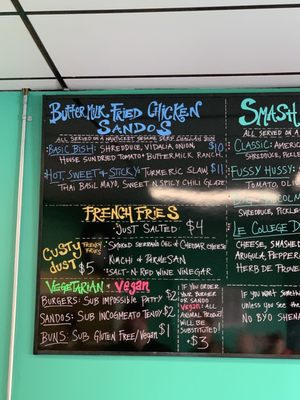 Buttermilk Fried Chicken
Sandos
All served on a Nantucket Sesame Challah Bun
Basic Bish: Shredduce, Vidalia Onion, $10
House Sun Dried Tomato Buttermilk Ranch
Hot, Sweet & Sticky: Turmeric Slaw $11
Thai Basil Mayo, Sweet n Spicy Chili Glaze
French Fries
Just Salted: $4
Custy French Fries
dust $5
Smoked Serrano Chili & Cheddar Cheese
Kimchi & Parmesan
Salt-n-Red Wine Vinegar
Vegetarian & Vegan
Burgers: Sub Impossible Patty $2
Sandos: Sub Incogmeato Tendy $2
Buns: Sub Gluten Free/Vegan $1
If you order
your burger
or sando
Vegan: All
animal product
will be
substituted!
$3
Smash
All served on a
Classic: Americ
Shredduce, Pickle
Fussy Hussy:
Tomato, Oli
Shredduce, Pickle
Le College D
Cheese, Smashed
Arugula, Pepper
Herb de Prove
If you want some
unless you see the
No BYO Shena